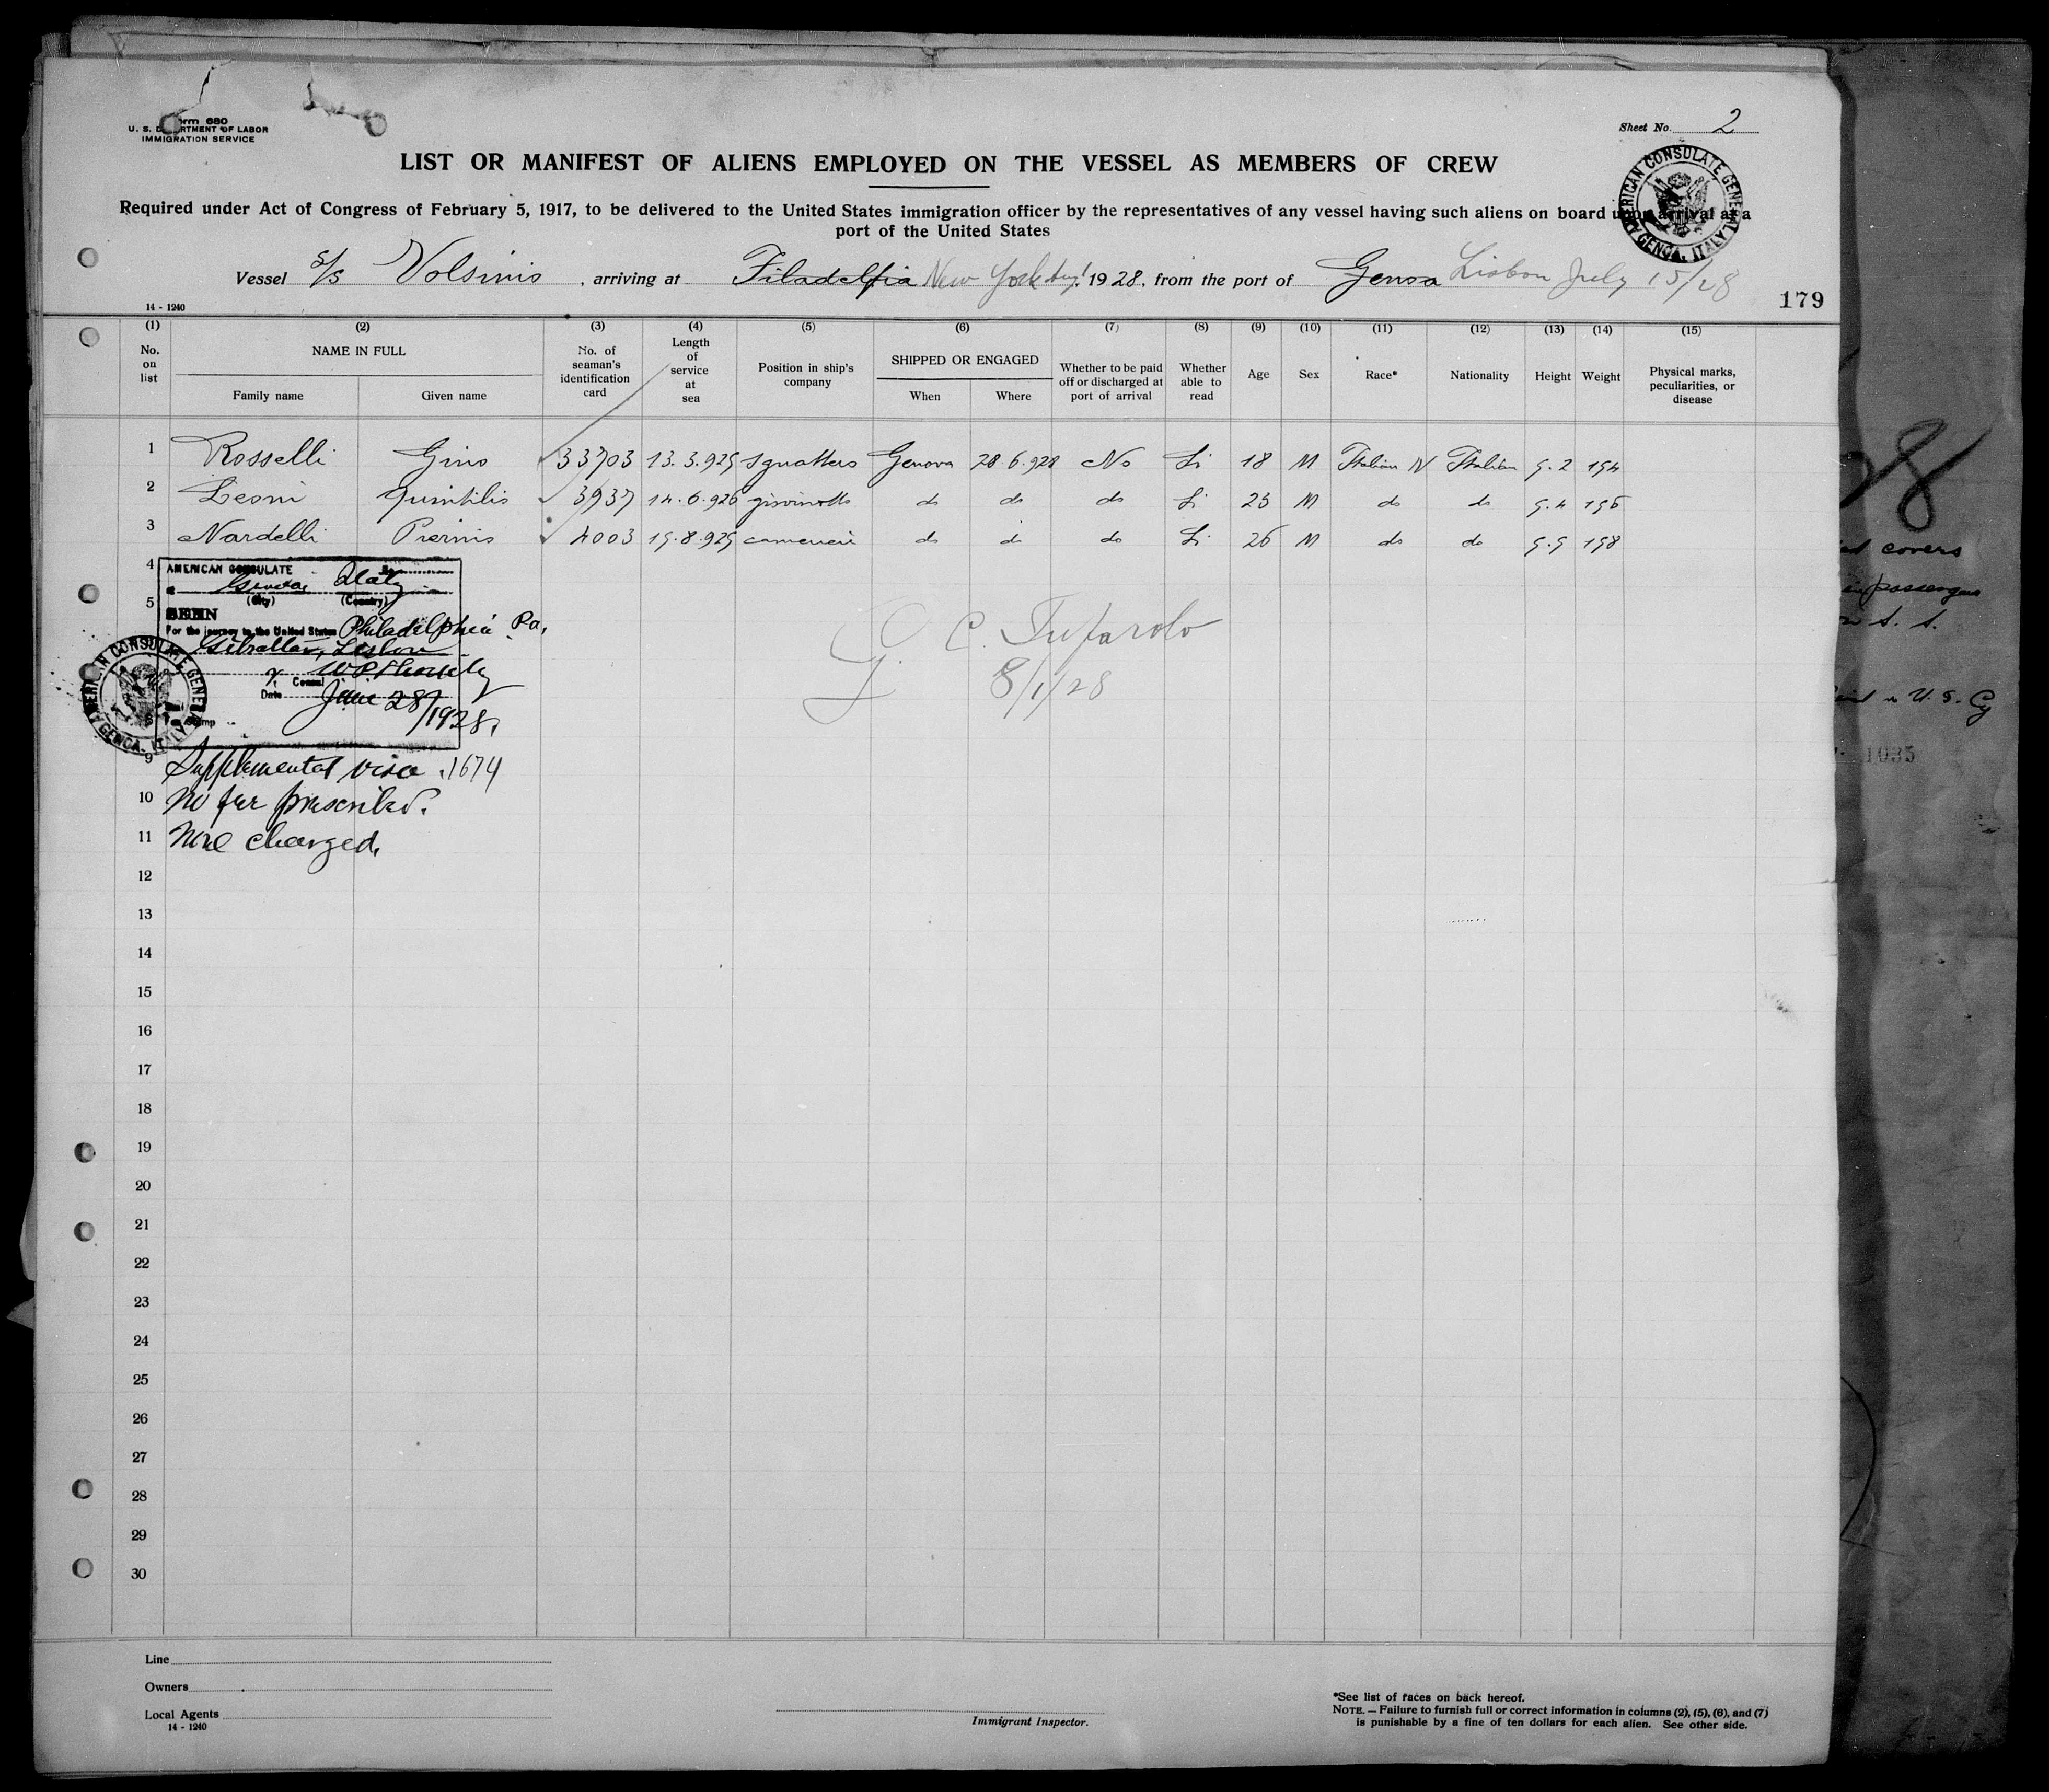 Form 680
U. S. DEPARTMENT OF LABOR
IMMIGRATION SERVICE
Sheet No. 2
LIST OR MANIFEST OF ALIENS EMPLOYED ON THE VESSEL AS MEMBERS OF CREW
Required under Act of Congress of February 5, 1917, to be delivered to the United States immigration officer by the representatives of any vessel having such aliens on board upon arrival at a
port of the United States
AMERICAN CONSULATE GENERAL GENOA, ITALY
Vessel S/S Volsinio, arriving at Filadelfia New York Aug 1 1928, from the port of Genoa Lisbon July 15/28
14 - 1240
179
(1) (2) (3) (4) (5) (6) (7) (8) (9) (10) (11) (12) (13) (14) (15)
No. on list NAME IN FULL Family name Given name No. of seaman's identification card Length of service at sea Position in ship's company SHIPPED OR ENGAGED When Where Whether to be paid off or discharged at port of arrival Whether able to read Age Sex Race* Nationality Height Weight Physical marks, peculiarities, or disease
1 Rosselli Gino 33703 13.3.925 sguattero Genova 28.6.928 No Si 18 M Italian N Italian 5.2 154
2 Leoni Quintilio 3937 14.6.926 giovinotto do do do Si 23 M do do 5.4 156
3 Nardelli Pierino 4003 15.8.925 cameriere do do do Si 26 M do do 5.5 158
4
5
AMERICAN CONSULATE
Genoa, Italy
(City) (Country)
SEEN
For the journey to the United States Philadelphia Pa.
Gibraltar, Lisbon
Consul
Date June 28/1928.
AMERICAN CONSULATE GENERAL GENOA, ITALY
C. Tufarolo
8/1/28
9 Supplemental visa 1674
10 No fee prescribed.
11 None charged.
12
13
14
15
16
17
18
19
20
21
22
23
24
25
26
27
28
29
30
Line
Owners
Local Agents
14 - 1240
Immigrant Inspector.
*See list of races on back hereof.
NOTE. — Failure to furnish full or correct information in columns (2), (5), (6), and (7)
is punishable by a fine of ten dollars for each alien. See other side.
covers
passengers
S. S.
U. S. Cy
1035